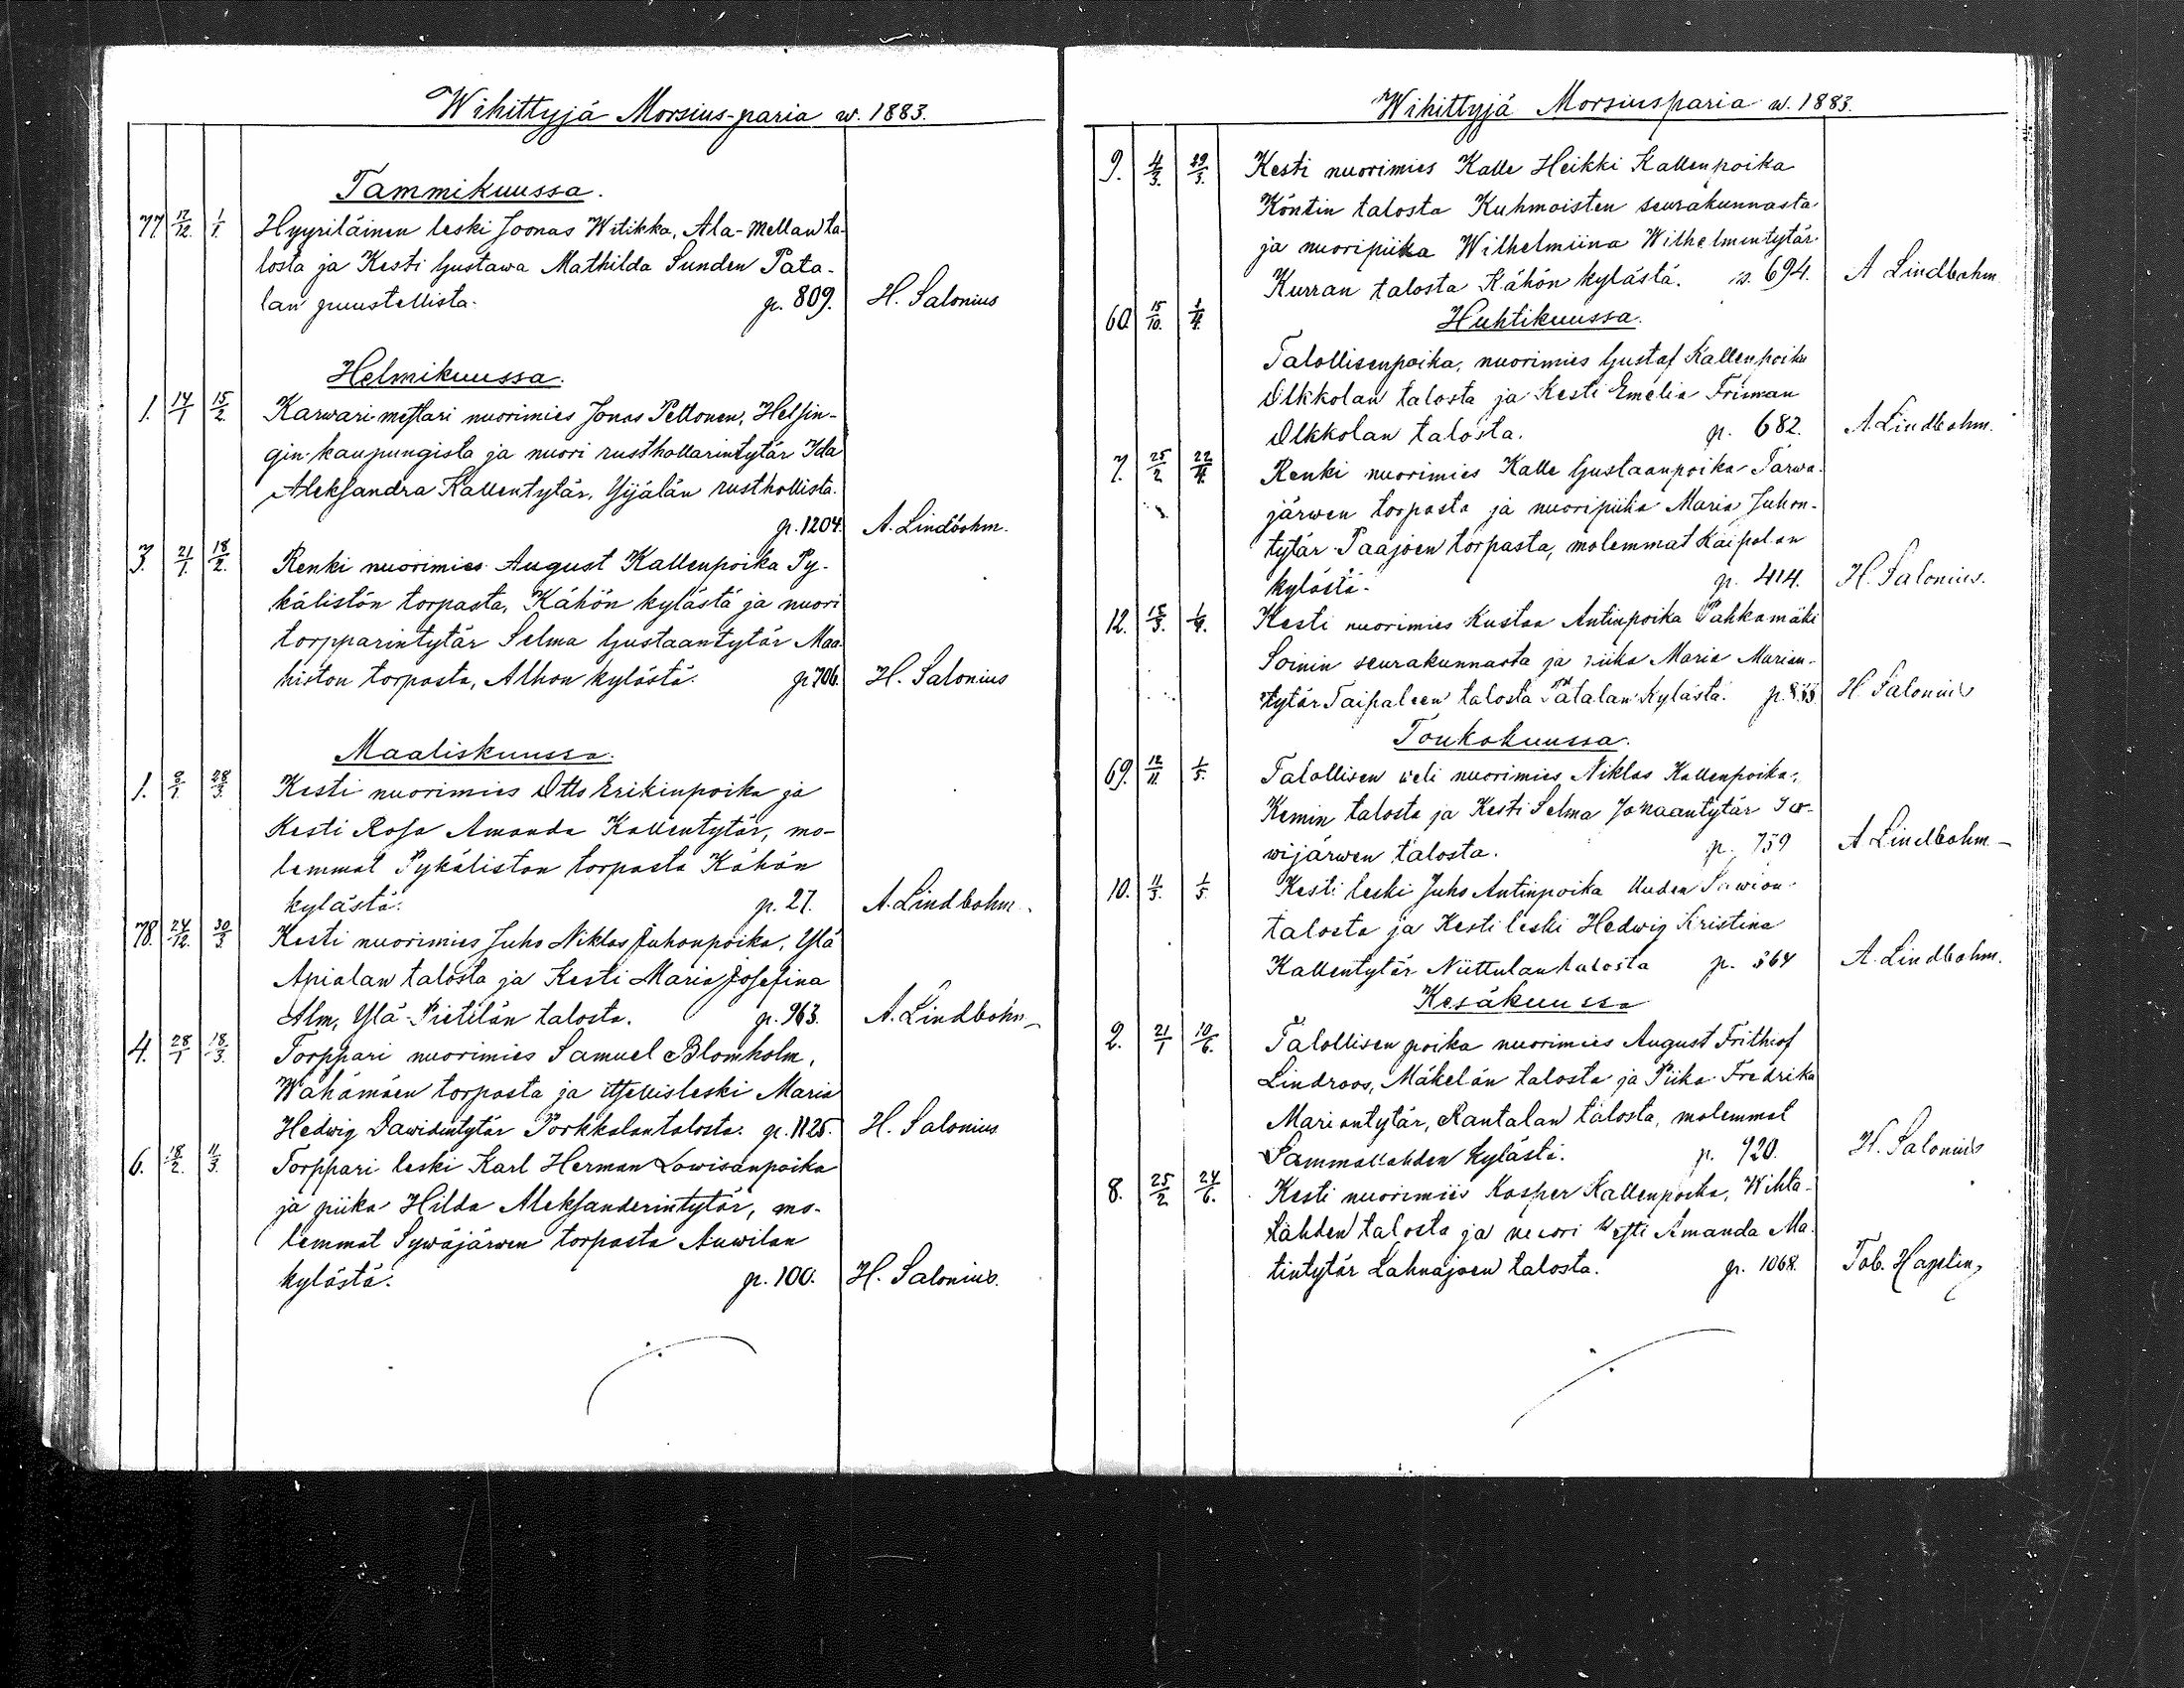 Wihittyjä Morsius-paria w. 1883.
Tammikuussa.
77. 17/12. 1/1. Hyyriläinen leski Joonas Witikka, Ala-Mellan ta-
losta ja Kesti Gustawa Mathilda Sunden Pata-
lan puustellista. p. 809. H. Salonius
Helmikuussa.
1. 14/1 15/2. Karwari mestari nuorimies Jonas Peltonen, Helsin-
gin kaupungista ja nuori rusthollarintytär Ida
Aleksandra Kallentytär, Yijälän rusthollista.
p. 1204. A. Lindbohm.
3. 21/1. 18/2. Renki nuorimies August Kallenpoika Py-
kälistön torpasta, Kähön kylästä ja nuori
torpparintytär Selma Gustaantytär Maa-
histon torpasta, Alhon kylästä. p. 706. H. Salonius
Maaliskuussa.
1. 8/1. 28/3. Kesti nuorimies Otto Erikinpoika ja
Kesti Rosa Amanda Kallentytär, mo-
lemmat Pykäliston torpasta Kähön
kylästä. p. 27. A. Lindbohm.
78. 24/12. 30/3 Kesti nuorimies Juho Niklas Juhonpoika, Ylä
Apialan talosta ja Kesti Maria Josefina
Alm, Ylä-Pietilän talosta. p. 963. A. Lindbohm
4. 28/1 18/3. Torppari nuorimies Samuel Blomholm,
Wahämäen torpasta ja itsellisleski Maria
Hedwig Dawidintytär Porkkalan talosta. p. 1125. H. Salonius
6. 18/2. 11/3. Torppari leski Karl Herman Lowisanpoika
ja piika Hilda Aleksanderintytär, mo-
lemmat Sywäjärwen torpasta Auwilan
kylästä. p. 100. H. Salonius.
Wihittyjä Morsiusparia w. 1883.
9. 4/3. 29/3. Kesti nuorimies Kalle Heikki Kallenpoika
Köntin talosta Kuhmoisten seurakunnasta
ja nuoripiika Wilhelmiina Wilhelmintytär
Kurran talosta Kähön kylästä. s. 694. A Lindbohm
60. 15/10. 1/4. Huhtikuussa.
Talollisenpoika, nuorimies Gustaf Kallenpoika
Olkkolan talosta ja Kesti Emelia Friman
Olkkolan talosta. p. 682. A. Lindbohm.
7. 25/2 22/4. Renki nuorimies Kalle Gustaanpoika Tarwa-
järwen torpasta ja nuoripiika Maria Juhon-
tytär Paajoen torpasta, molemmat Kaipolan
kylästä. p. 414. H. Salonius.
12. 18/3. 1/4. Kesti nuorimies Kustaa Antinpoika Pahkamäki
Soinin seurakunnasta ja piika Maria Marian-
tytär Taipaleen talosta Patalan kylästä. H Salonius
Toukokuussa.
69. 12/11. 1/5. Talollisen weli nuorimies Niklas Kallenpoika,
Kemin talosta ja Kesti Selma Jonaantytär
wijärwen talosta. p. 759 A Lindbohm
10. 11/3. 1/5. Kesti leski Juho Antinpoika Uuden Sawion
talosta ja Kesti leski Hedwig Kristina
Kallentytär Niittulan talosta p. 364 A. Lindbohm.
Kesäkuussa
2. 21/1 10/6. Talollisen poika nuorimies August Frithiof
Lindroos, Mäkelän talosta ja Piika Fredrika
Mariantytär, Rantalan talosta, molemmat
Sammallahden kylästä. p. 920. H. Salonius
8. 25/2 24/6. Kesti nuorimies Kasper Kallenpoika, Wihta-
lahden talosta ja nuori Kesti Amanda Ma-
tintytär Lahnajoen talosta. p. 1068. Tob. Hazelin